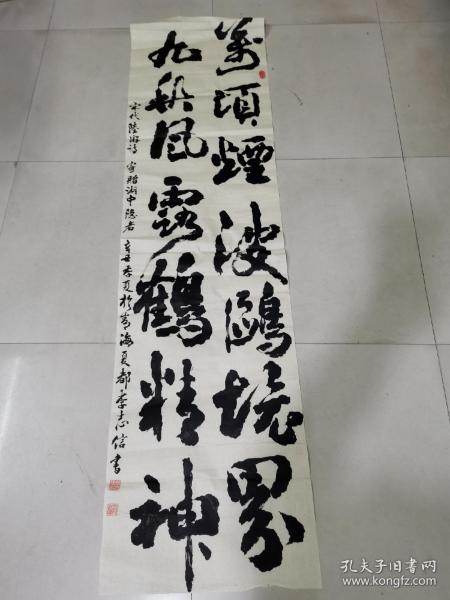 萬頃煙波鷗境界
九秋風露鶴精神
宋代陸游詩 寄贈湖中隱者 辛丑季夏於青海夏都李志信書
孔夫子旧书网
www.kongfz.com